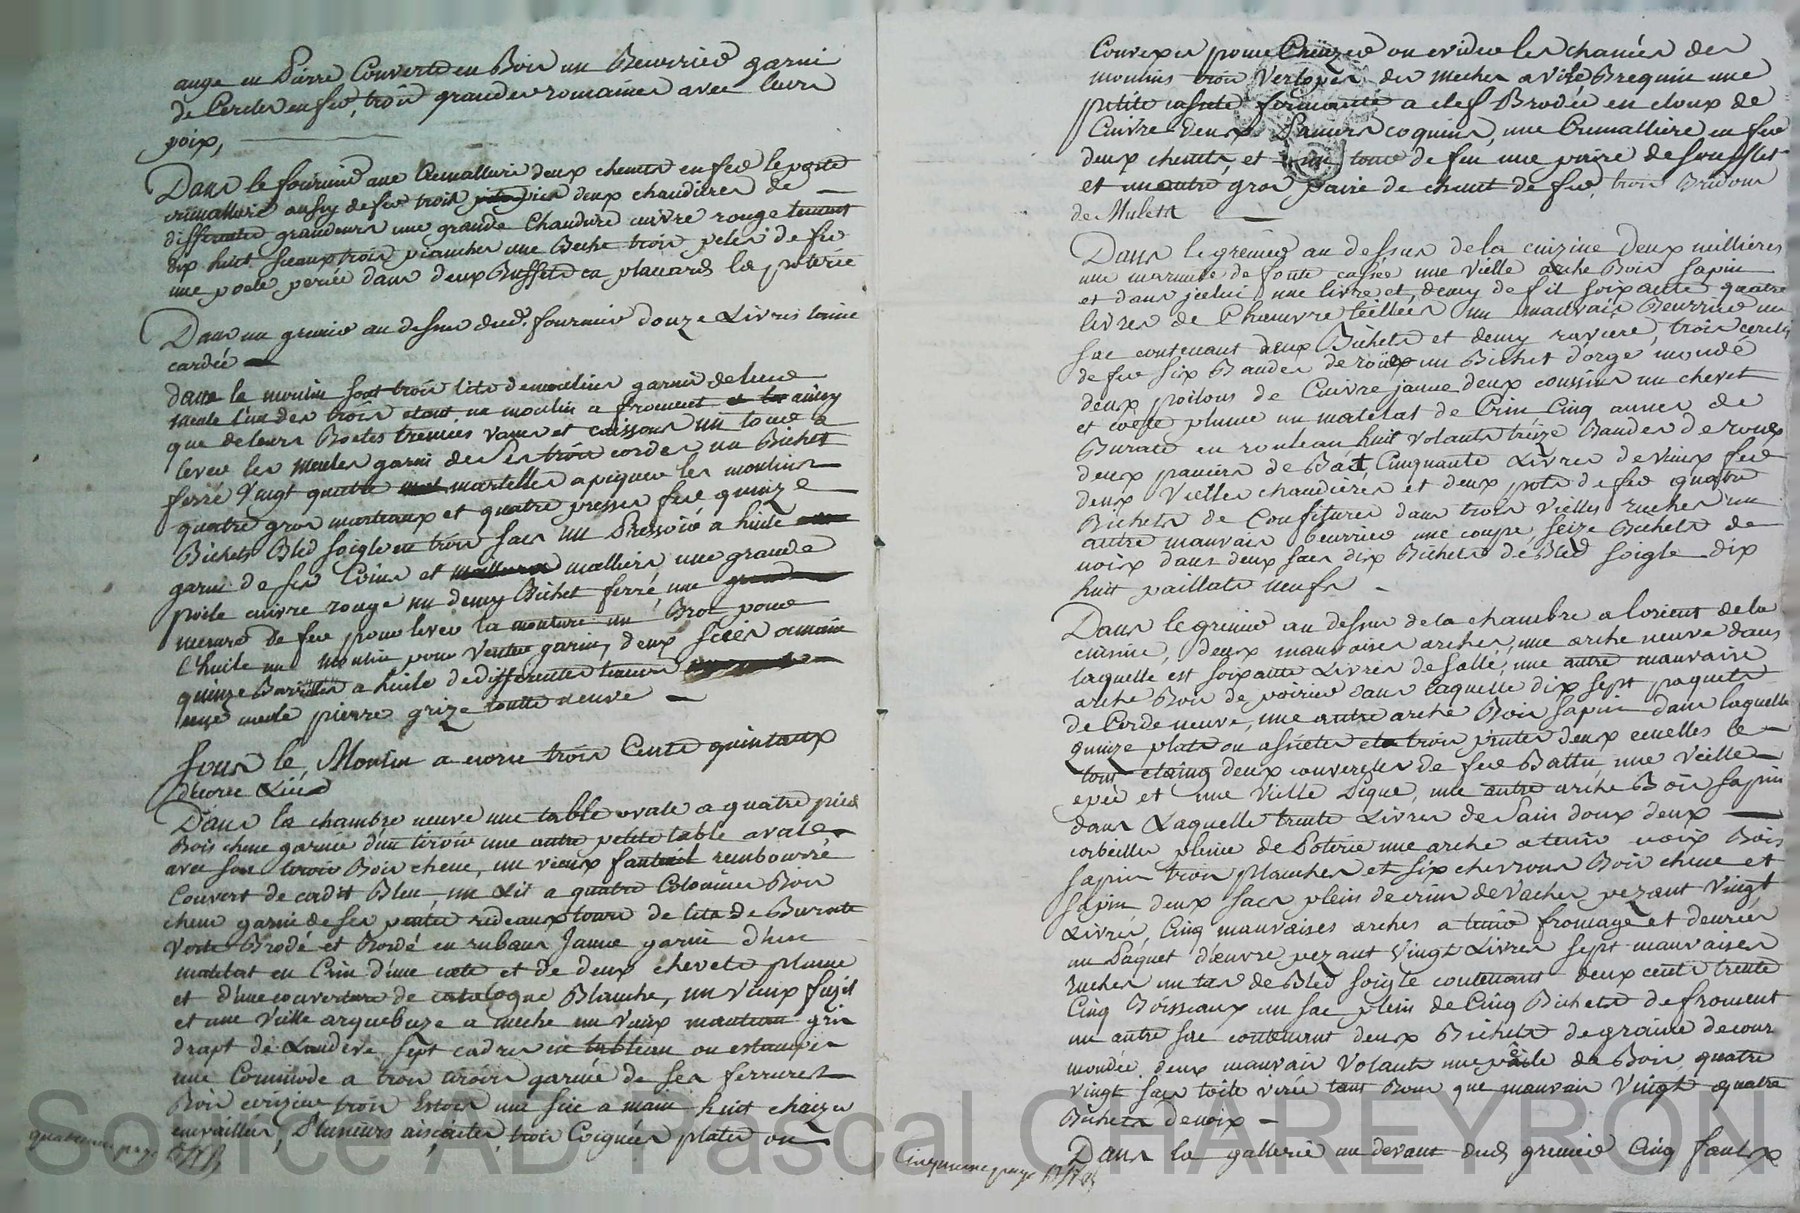 auge en Pierre Couverte en Bois un Beurrier garni
de Cercles en fer, trois grandes romaines avec leurs
poix,
Dans le fournier une Cremalliere deux chenets en fer le porte
cremalliere aussy de fer trois pieds deux chaudieres de
differentes grandeurs une grande Chaudiere cuivre rouge tenant
dix huit seaux trois pioches une Beche trois peles de fer
une poele percée dans deux Buffets en placards la poterie
Dans un grenier au dessus dud. fournier douze Livres laine
cardée
dans le moulin sont trois lits de moulins garni de leurs
meule l'un des trois etant un moulin a froment ainsy
que de leurs Boetes tremies vans et caissons un tour a
lever les meules garni de ses trois cordes un Bichet
ferré Vingt quatre martelles a piquer les moulins
quatre gros marteaux et quatre presses fer quinze
Bichets Bled soigle en trois sacs un Pressoir a huile
garni de ses Coins et malliers, une grande
poile cuivre rouge un demy Bichet ferré une
mesure de fer pour lever la mouture un Broc pour
l'huile un moulin pour Venter garni, deux scies a main
quinze Barrilles a huile de differentes teneurs
une meule pierre grize toutte neuve
Sous le Moulin a ecorce trois Cents quintaux
d'ecorce
Dans la chambre neuve une table ovale a quatre pieds
Bois chene garnie d'un tiroir une autre petite table avale
avec son tiroir Bois chene, un vieux fauteuil rembourré
Couvert de cadis Bleu, un Lit a quatre Colonnes Bois
chene garni de ses pentes rideaux tours de lits de Burate
Verte Brodé et Bordé en rubans Jaune garni d'un
matelat en Crin d'une coete et de deux chevets plume
et d'une couverture de catalogne Blanche, un vieux fuzil
et une Vielle arquebuze a meche un Vieux manteau gris
drapt de Laudeve sept cadres en tableau ou estampes
une Commode a trois tiroirs garnie de ses ferrures
Bois cerizier trois une scie a main huit chaizes
enpaillées, Plusieurs trois Coignées plates ou
quatrieme page
Convexes pour Creuzer ou evider les chanées des
moulins trois Verlopes des meches a Virebrequin une
petite cassete fermante a clef Brodée en cloux de
Cuivre deux Paniers coquins, une Cremalliere en fer
deux chenets, et tour de feu une paire de soufflet
et un autre gros paire de chenet de fer, trois Bridons
de Mulets
Dans le grenier au dessus de la cuizine deux millieres
une marmite de fonte cassée une Vielle arche Bois sapin
et dans icelui une livre et demy de fil soixante quatre
livres de Chanvre teillées un mauvais Beurrier un
sac contenant deux Bichets et demy raviere, trois cercles
de fer six Bandes de roües un Bichet d'orge mondé
deux poilons de Cuivre jaune deux coussins un chevet
et coete plume un matelat de Crin Cinq aunes de
Burate en rouleau huit volants treize Bandes de roues
deux paniers de Bast, Cinquante Livres de vieux fer
deux Vielles chaudieres et deux pots de fer quatre
Bichets de Confitures dans trois Vielles ruches un
autre mauvais beurrier une coupe, seize Bichets de
noix dans deux sacs dix Bichets de Bled soigle dix
huit paillats neufs
Dans le grenier au dessus de la chambre a lorient de la
cuisine, deux mauvaises arches, une arche neuve dans
laquelle est soixante Livres de sallé, une autre mauvaise
arche Bois de poirier dans laquelle dix sept paquets
de Corde neuve, une autre arche Bois sapin dans laquelle
quinze plats ou assietes et trois pintes deux ecuelles le
tout etaing deux couvercles de fer Battu une Vielle
epée et une Vielle Dague, une autre arche Bois sapin
dans Laquelle trente Livres de Sain doux deux
corbeilles pleine de Poterie une arche a tenir noix Bois
sapin trois planches et six chevrons Bois chene et
sapin deux sacs plein de crin de Vaches pezant Vingt
Livres, Cinq mauvaises arches a tenir fromage et denrées
un Paquet d'œuvre pezant Vingt Livres sept mauvaises
ruches un tas de Bled soigle contenant deux cents trente
Cinq Boisseaux un sac plein de Cinq Bichets de froment
un autre sac contenant deux Bichets de graine de cour
mondée deux mauvais Volants une pele de Bois quatre
vingt sacs toile tant Bons que mauvais Vingt quatre
Bichets de noix
Dans la gallerie au devant dud. grenier Cinq faulx
Cinquieme page
Source AD Pascal CHAREYRON